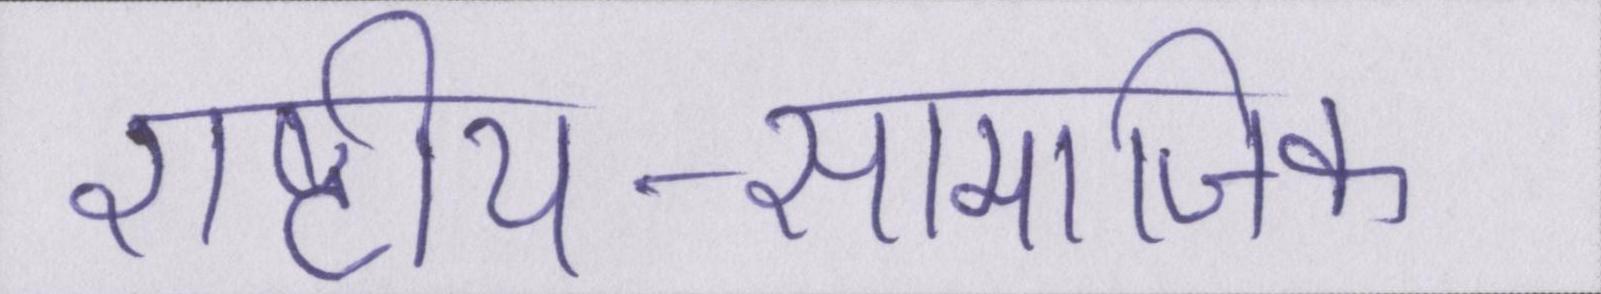 राष्ट्रीय-सामाजिक